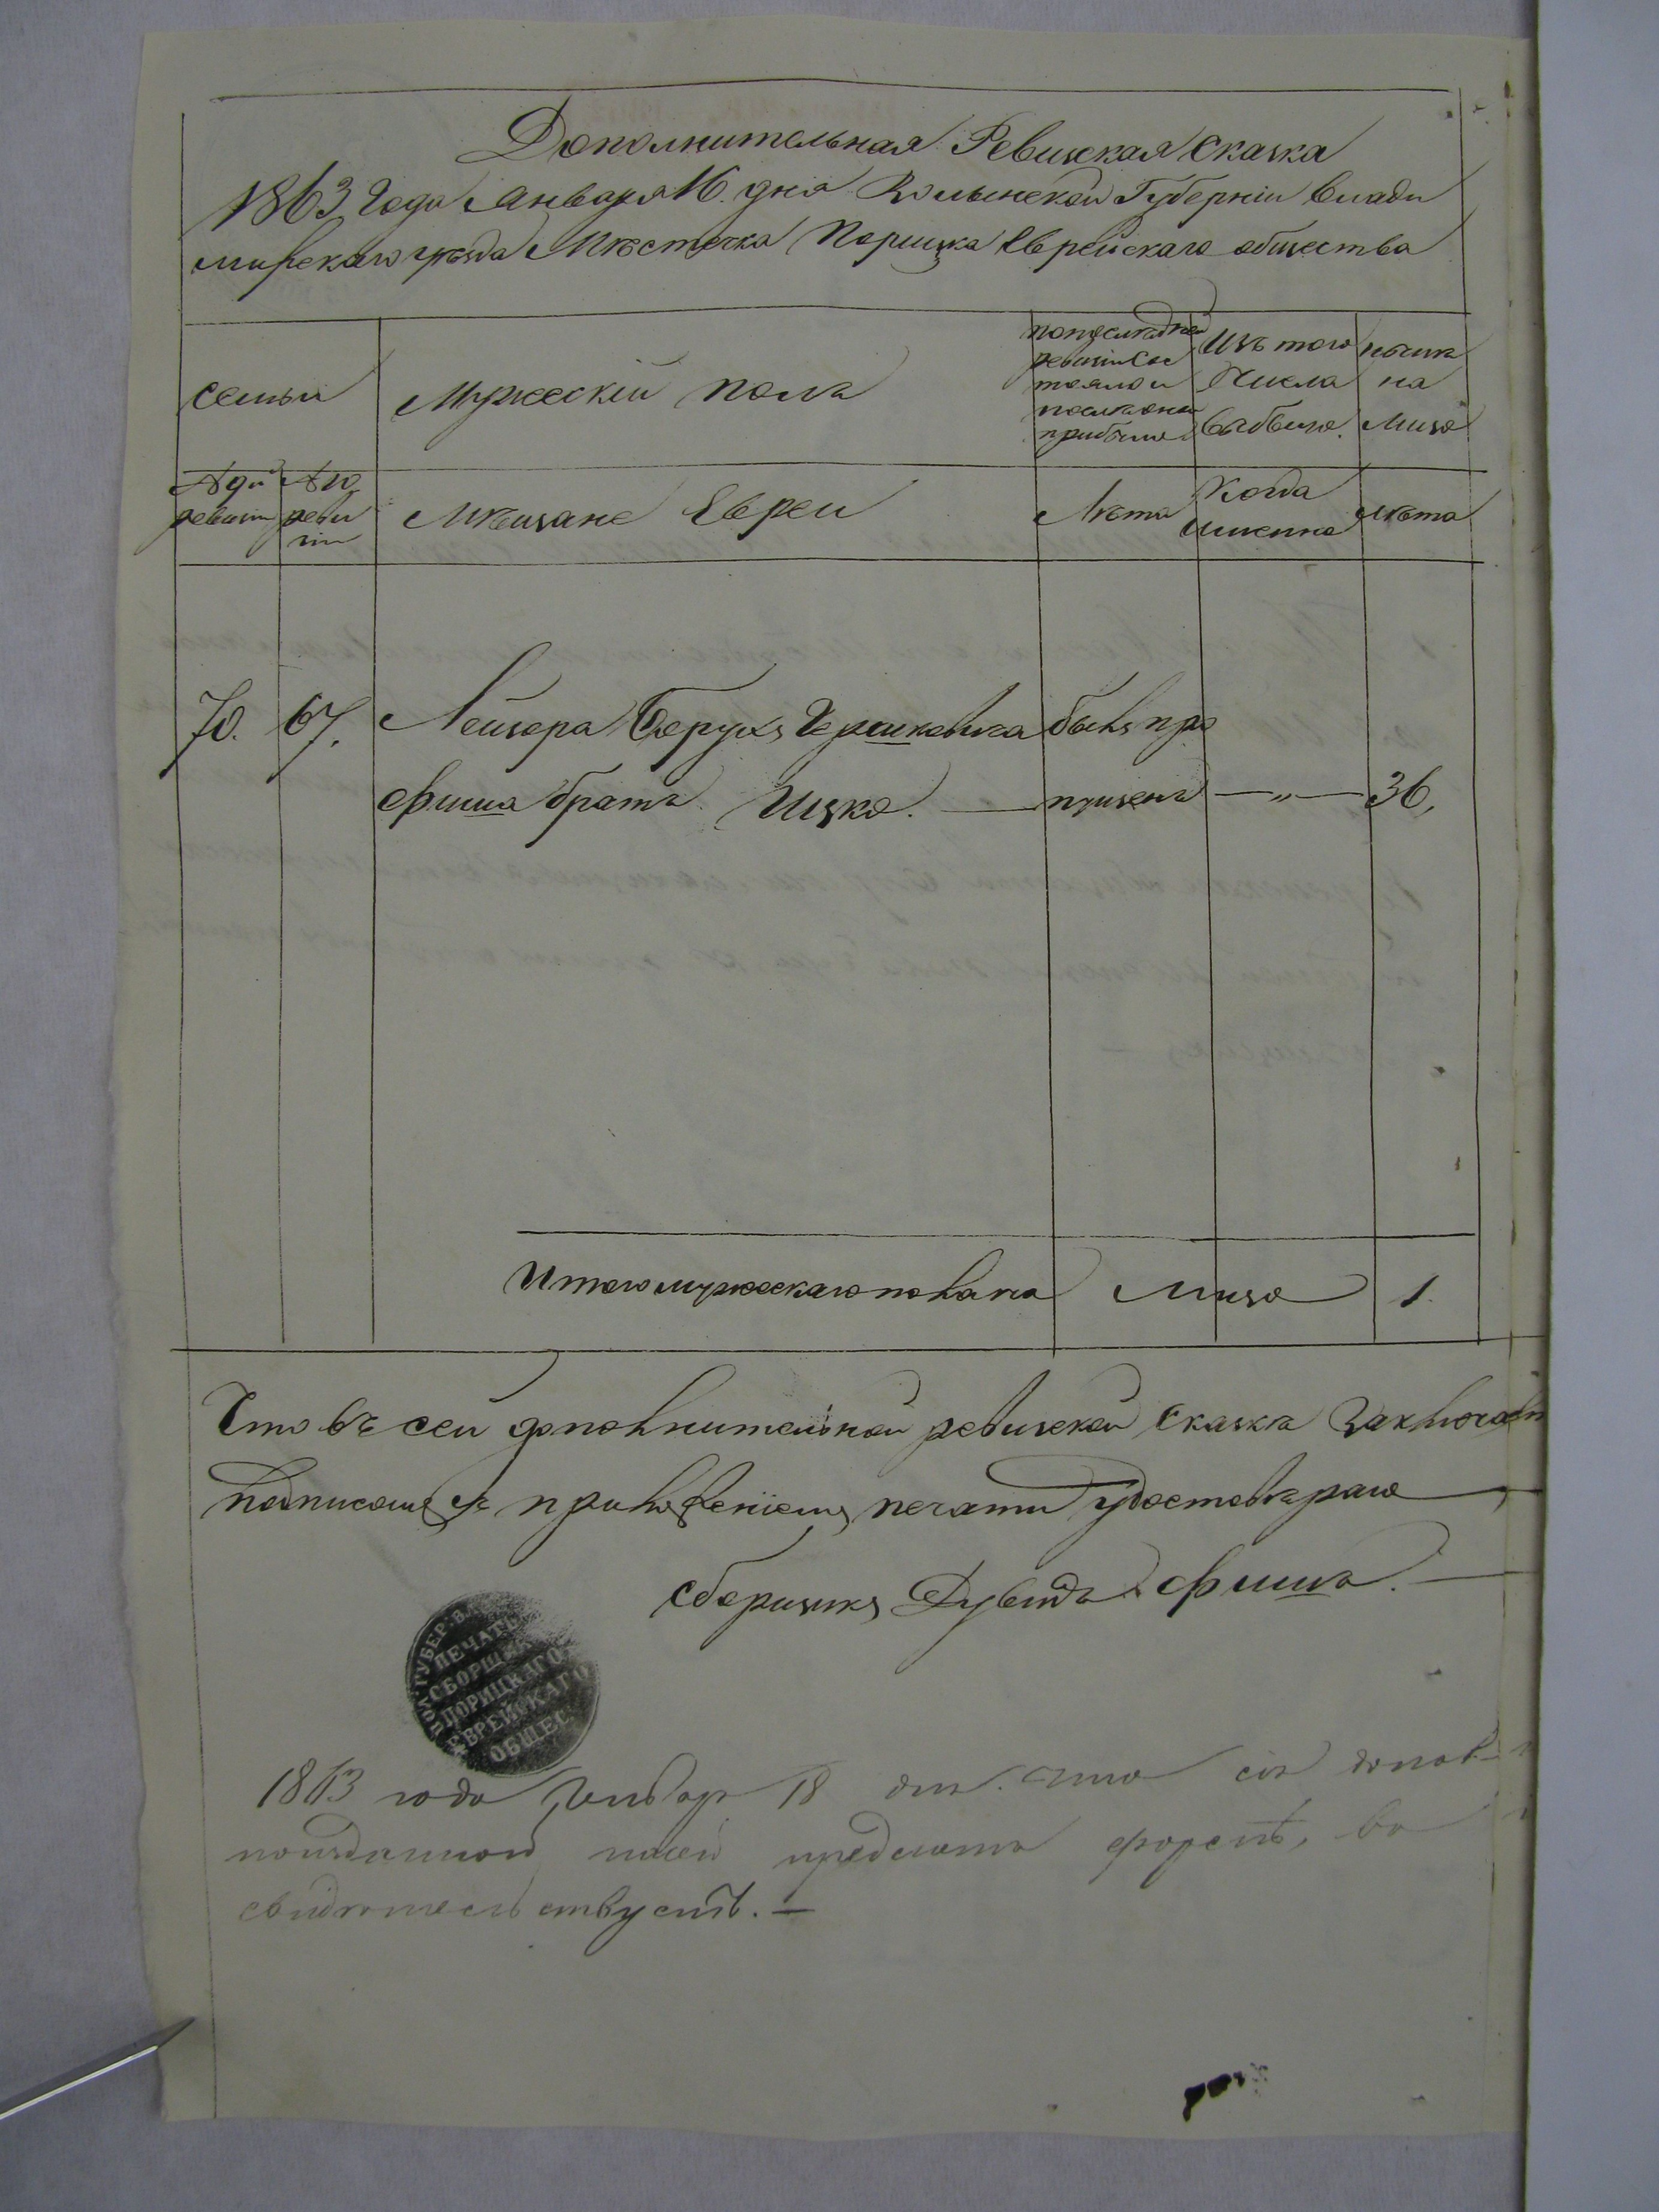 Дополнительная Ревизская Сказка
1863 Года Января 16 дня Волынской Губерніи Влади
мирскаго уѣзда Мѣстечка Порицка Еврейскаго общества
семьи
Мужескій пола
по последней
ревизіи сос
тояло и
после оной
прибыло
Изъ того
Числа
выбыло.
нынѣ
на
лицо
ревизіи
реви
зіи
Мѣщане Евреи
Лѣта
Когда
именно
лѣта
70. 67. Лейзора Боруха Гершковича былъ про
Фиша братъ Ицко. — пущенъ — „ — 36,
Итого мужескаго пола на Лицо 1.
Что въ сей дополнительной ревизской Сказкѣ заключает
подписомъ съ приложеніемъ печати удостовѣраю
сборщикъ Дувидъ Фишъ.
ПЕЧАТЬ
СБОРЩИКА
ПОРИЦКАГО
ЕВРЕЙСКАГО
ОБЩЕС.
1863 года Январ 18 дня. что сія допол-
поизданной предмета формѣ, во
свидѣтельствуетъ. —